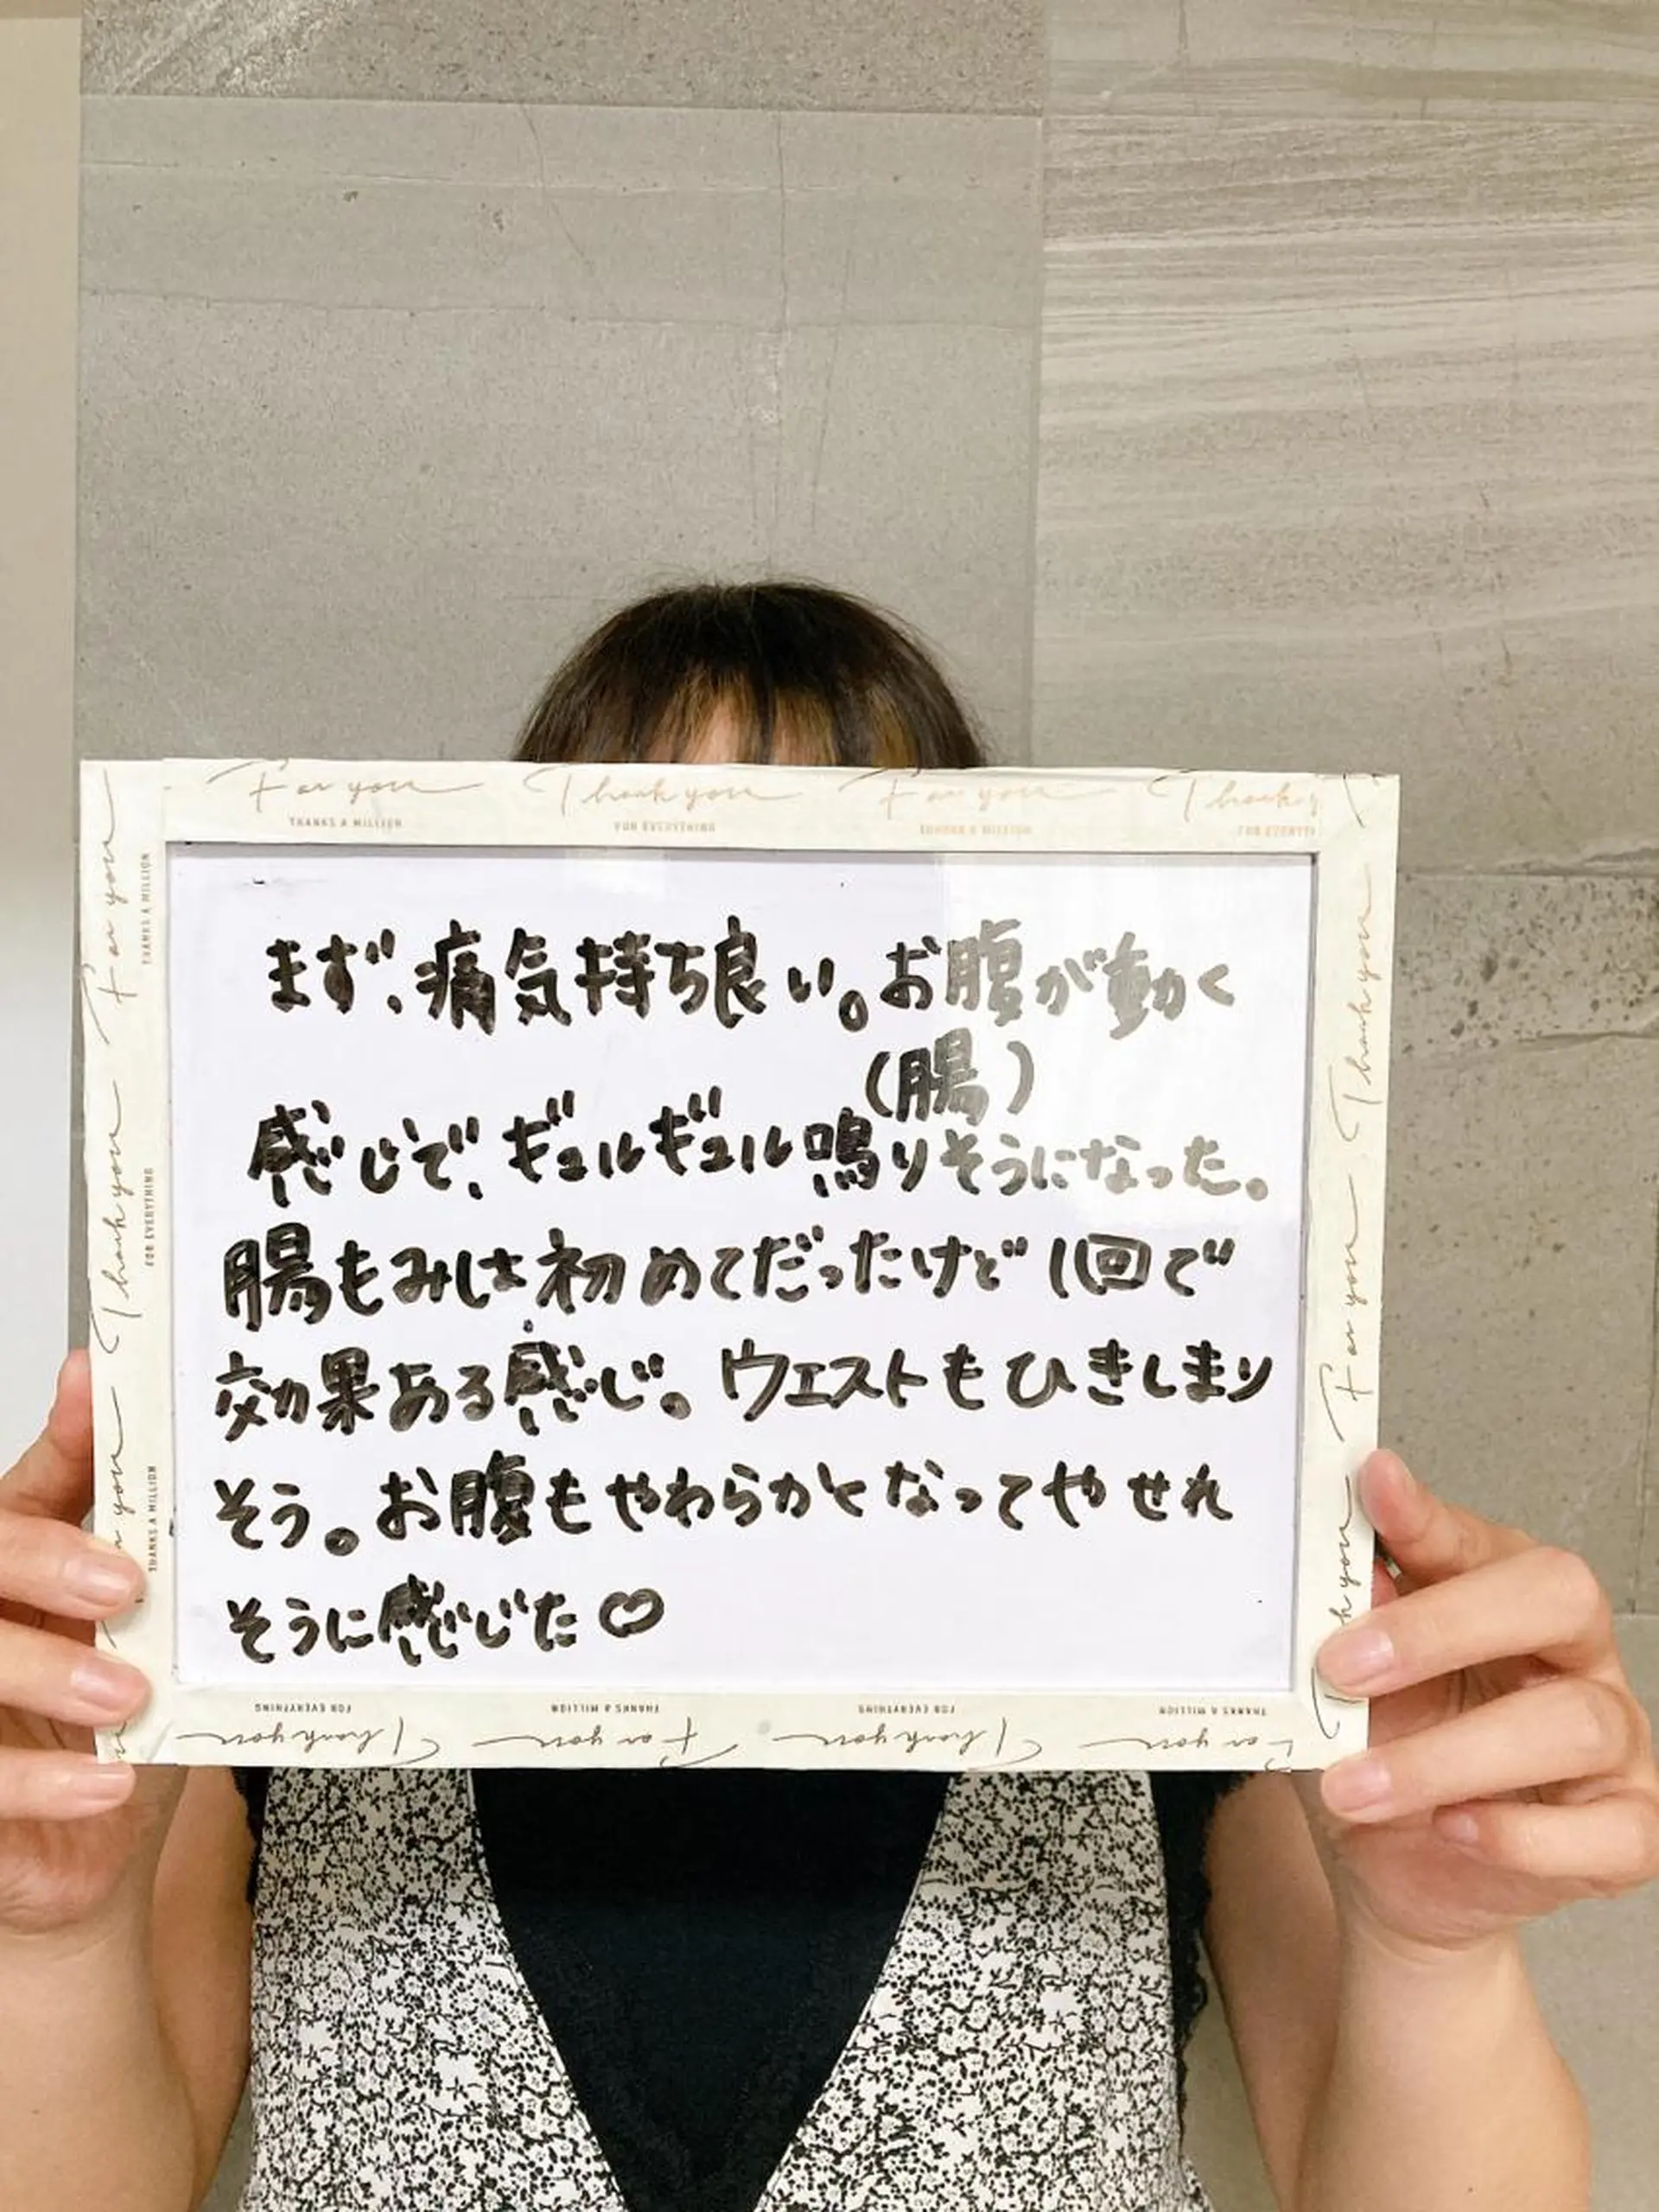 For you Thank you For you Thank y
THANKS A MILLION FOR EVERYTHING THANKS A MILLION FOR EVERYTHI
まず、痛気持ち良い。お腹が動く
(腸)
感じで、ギュルギュル鳴りそうになった。
腸もみは初めてだったけど1回で
効果ある感じ。ウエストもひきしまり
そう。お腹もやわらかくなってやせれ
そうに感じた♡
For you
THANKS A MILLION
Thank you
FOR EVERYTHING
you
THANKS A MILLION
Thank you
For you
k you
FOR EVERYTHING THANKS A MILLION FOR EVERYTHING THANKS A MILLION
Thank you For you Thank you For you